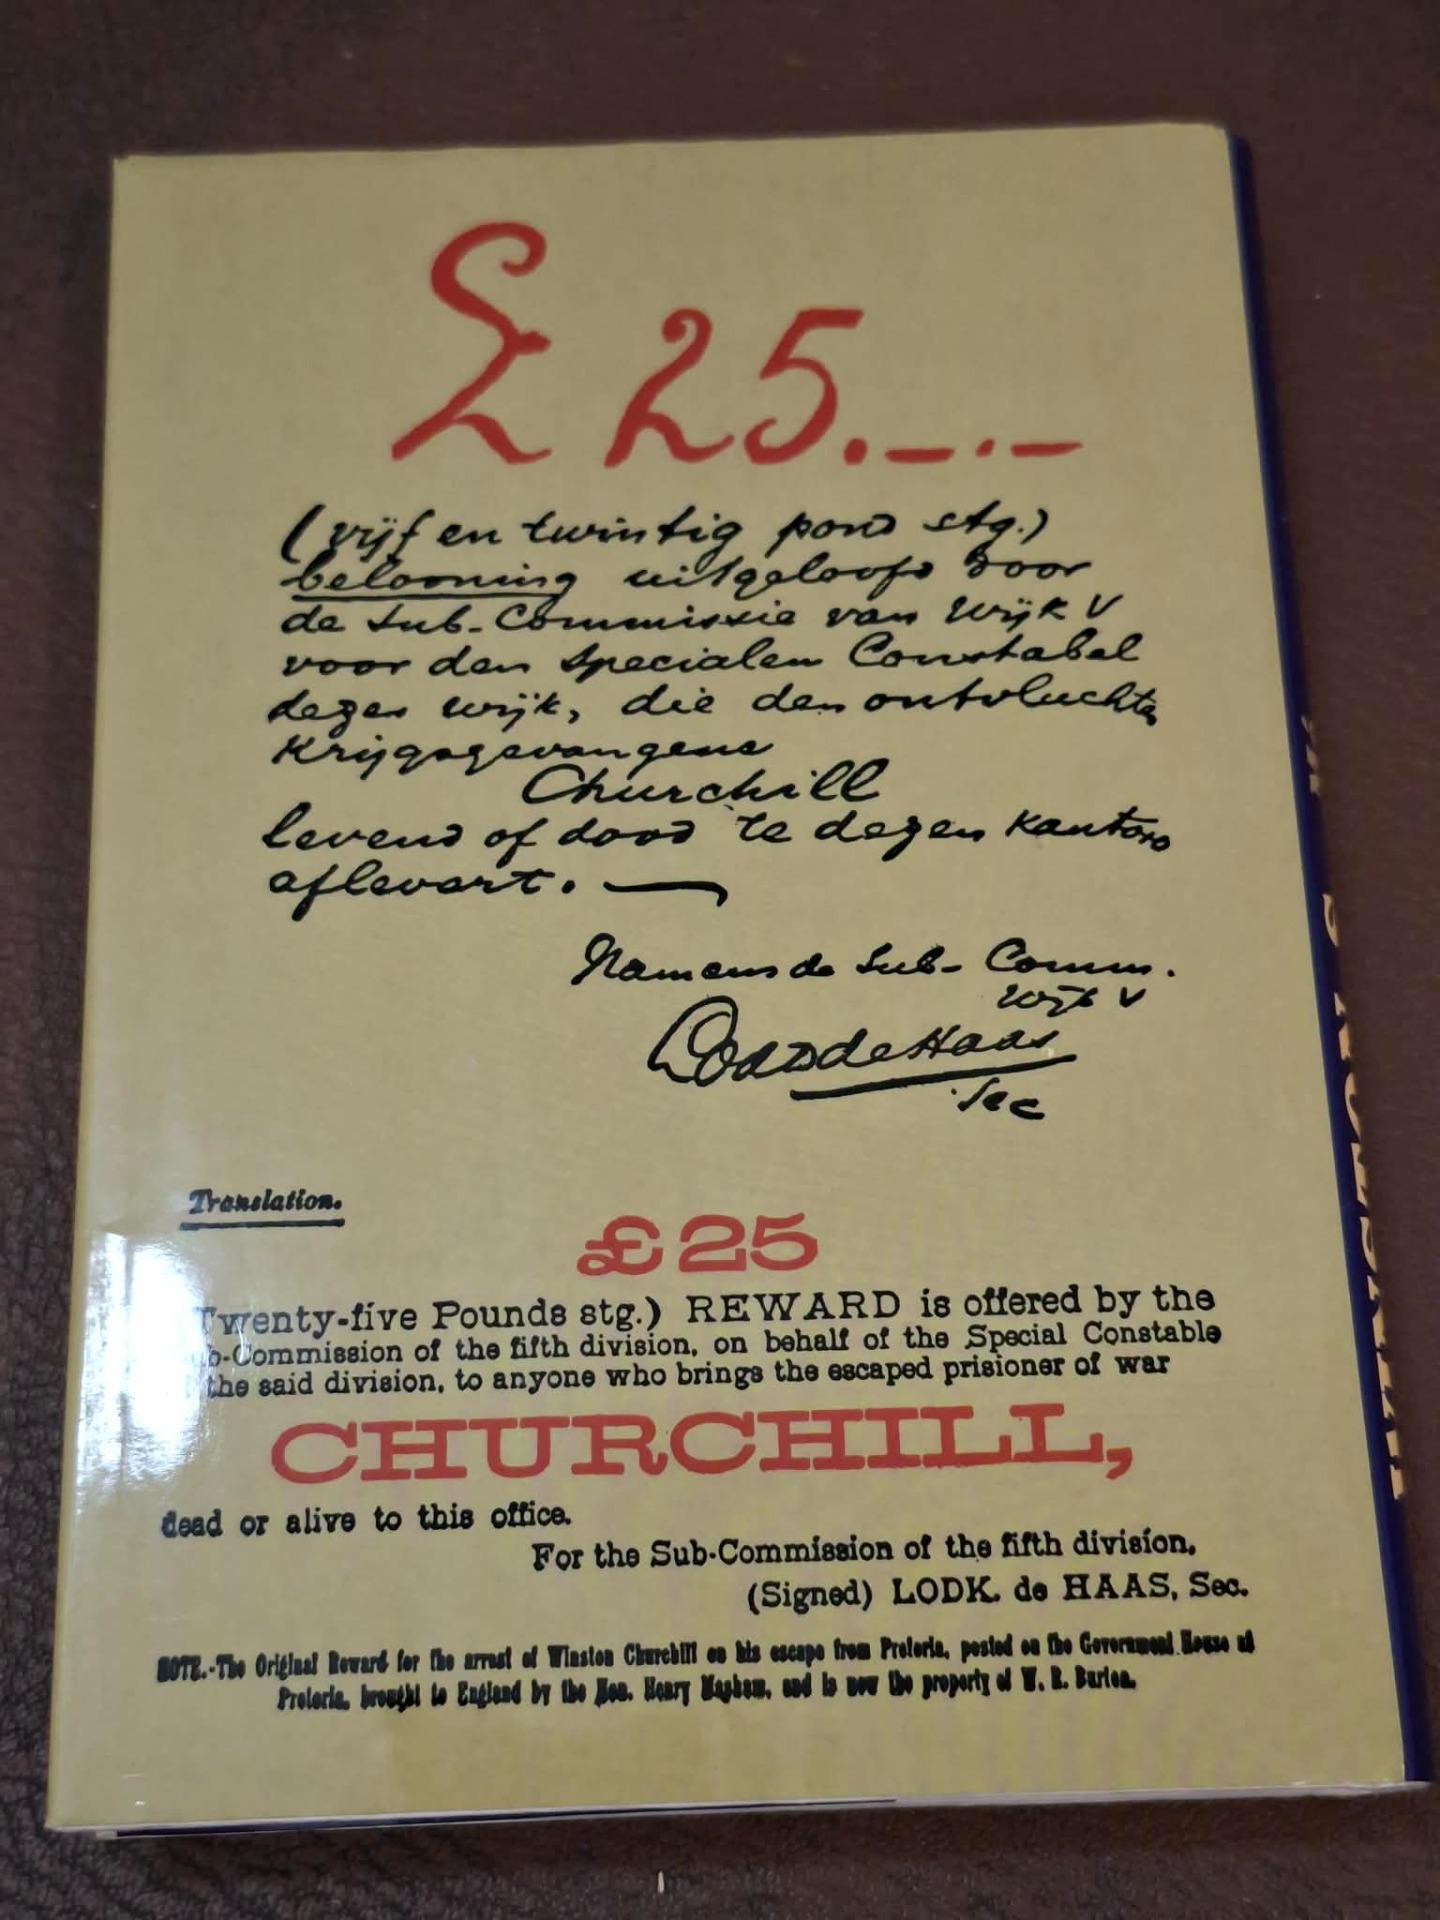 £ 25.—.—
(vijf en twintig pond stg.)
belooning uitgeloofd door
de Sub-Commissie van Wijk V
voor den specialen Constabel
dezer wijk, die den ontvluchten
Krijgsgevangene
Churchill
levend of dood te dezen kantore
aflevert. —
Namens de Sub-Comm.
Wijk V
Lodk de Haas
Sec
Translation.
£25
Twenty-five Pounds stg.) REWARD is offered by the
b-Commission of the fifth division, on behalf of the Special Constable
the said division, to anyone who brings the escaped prisioner of war
CHURCHILL,
dead or alive to this office.
For the Sub-Commission of the fifth division,
(Signed) LODK. de HAAS, Sec.
NOTE.-The Original Reward for the arrest of Winston Churchill on his escape from Pretoria, posted on the Government House at
Pretoria, brought to England by the Hon. Henry Masham, and is now the property of W. R. Burton.